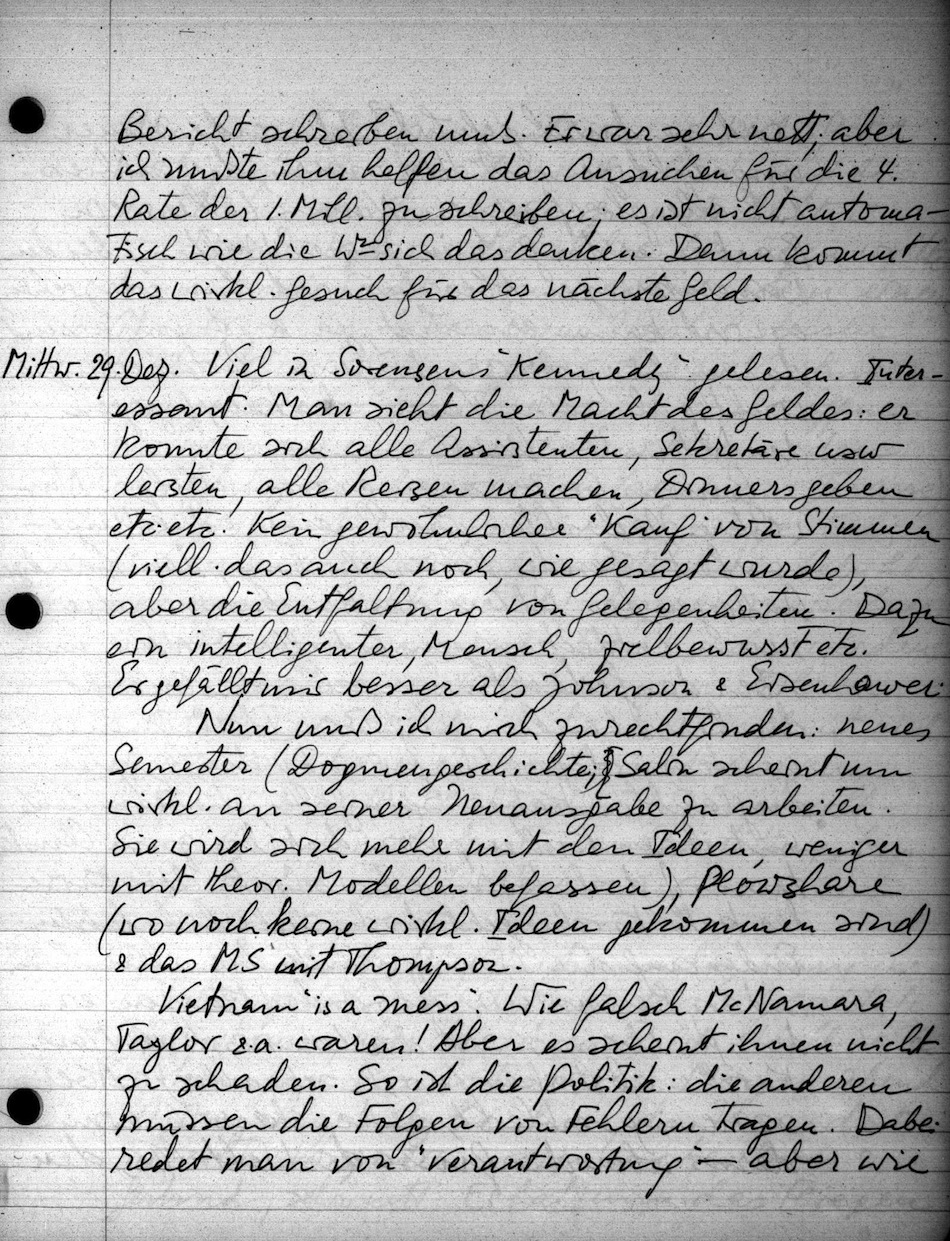 Bericht schreiben muß. Er war sehr nett, aber
ich mußte ihm helfen das Ansuchen für die 4.
Rate der 1. Mill. zu schreiben; es ist nicht automa-
tisch wie die sich das denken. Dann kommt
das wirkl. Gesuch für das nächste Geld.
Mittw. 29. Dez. Viel in Sorensens "Kennedy" gelesen. Inter-
essant. Man sieht die Macht des Geldes: er
konnte sich alle Assistenten, Sekretäre usw
leisten, alle Reisen machen, Dinners geben
etc etc. Kein gewöhnlicher "Kauf" von Stimmen
(viell. das auch noch, wie gesagt wurde),
aber die Entfaltung von Gelegenheiten. Dazu
ein intelligenter, Mensch, zielbewusst etc.
Er gefällt mir besser als Johnson & Eisenhower.
Nun muß ich mich zurechtfinden: neues
Semester (Dogmengeschichte; Salin scheint um
wirkl. an seiner Neuausgabe zu arbeiten.
Sie wird sich mehr mit den Ideen, weniger
mit theor. Modellen befassen), Plowshare
(wo noch keine wirkl. Ideen gekommen sind)
& das MS mit Thompson.
Vietnam "is a mess". Wie falsch McNamara,
Taylor u.a. waren! Aber es scheint ihnen nicht
zu schaden. So ist die Politik: die anderen
müssen die Folgen von Fehlern tragen. Dabei
redet man von "Verantwortung" – aber wie